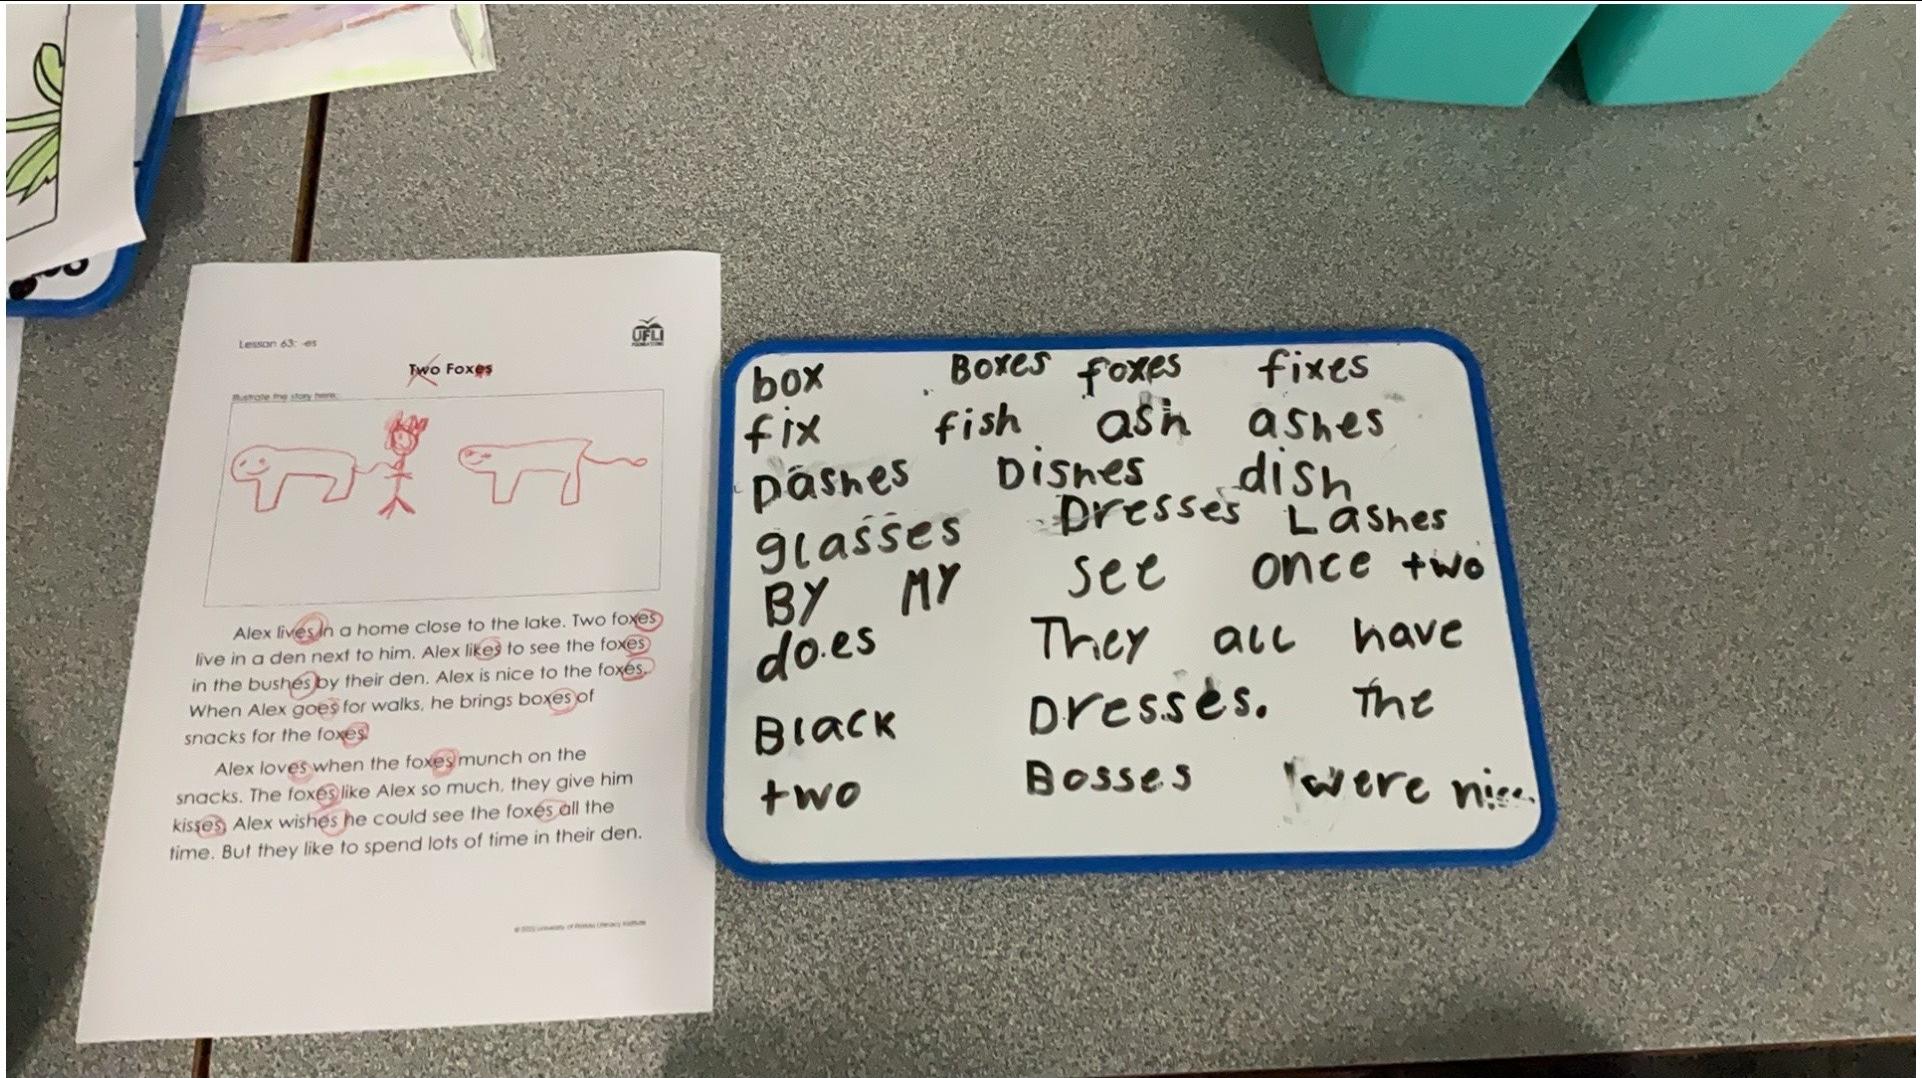 Lesson 63: -es
UFLI
FOUNDATIONS
Two Foxes
Illustrate the story here:
Alex lives in a home close to the lake. Two foxes
live in a den next to him. Alex likes to see the foxes
in the bushes by their den. Alex is nice to the foxes.
When Alex goes for walks, he brings boxes of
snacks for the foxes.
Alex loves when the foxes munch on the
snacks. The foxes like Alex so much, they give him
kisses. Alex wishes he could see the foxes all the
time. But they like to spend lots of time in their den.
© 2022 University of Florida Literacy Institute
box Boxes foxes fixes
fix fish ash ashes
Dashes Dishes dish
glasses Dresses Lashes
BY MY see once two
do.es They all have
Black Dresses. The
two Bosses were